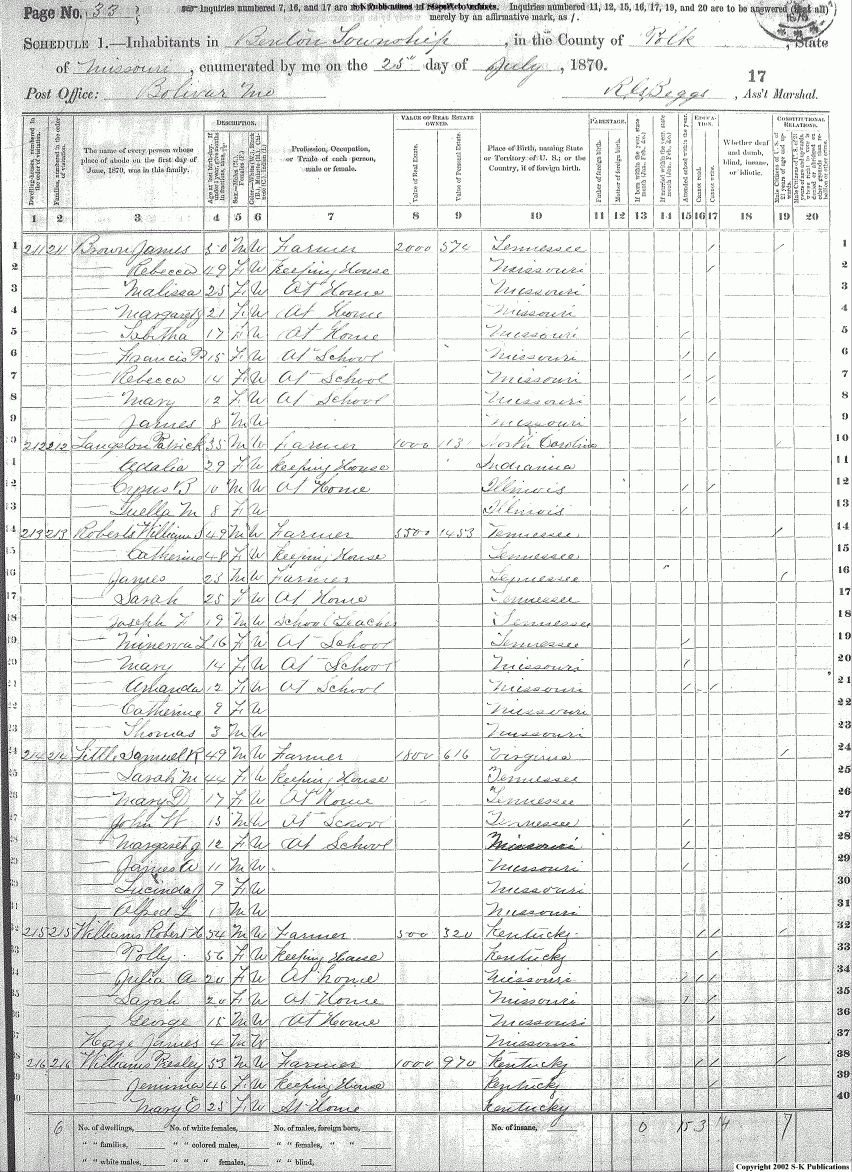 Page No. 33
Inquiries numbered 7, 16, and 17 are not Inquiries numbered 11, 12, 15, 16, 17, 19, and 20 are to be answered (if at all)
merely by an affirmative mark, as /.
SCHEDULE 1.—Inhabitants in Benton Township, in the County of Polk, State
of Missouri, enumerated by me on the 25th day of July, 1870.
17
Post Office: Bolivar Mo R.G. Beggs, Ass't Marshal.
DESCRIPTION. VALUE OF REAL ESTATE OWNED. PARENTAGE. EDUCATION. CONSTITUTIONAL RELATIONS.
Dwelling-houses, numbered in the order of visitation. Families, numbered in the order of visitation. The name of every person whose place of abode on the first day of June, 1870, was in this family. Profession, Occupation, or Trade of each person, male or female. Value of Real Estate. Value of Personal Estate. Place of Birth, naming State or Territory of U. S.; or the Country, if of foreign birth. Father of foreign birth. Mother of foreign birth. Attended school within the year. Cannot read. Cannot write. Whether deaf and dumb, blind, insane, or idiotic.
1 2 3 4 5 6 7 8 9 10 11 12 13 14 15 16 17 18 19 20
1 211 211 Brown James 50 M W Farmer 2000 574 Tennessee / / 1
2 — Rebecca 49 F W Keeping House Missouri / 2
3 — Malissa 25 F W At Home Missouri 3
4 — Margaret 21 F W At Home Missouri 4
5 — Tabitha 17 F W At Home Missouri / 5
6 — Francis 15 F W At School Missouri / / 6
7 — Rebecca 14 F W At School Missouri / / 7
8 — Mary 12 F W At School Missouri / / 8
9 — James 8 M W Missouri 9
10 212 212 Langston Patrick 35 M W Farmer 1000 1131 North Carolina / 10
11 — Adalia 29 F W Keeping House Indianna 11
12 — Cyrus B 10 M W At Home Illinois / / 12
13 — Luella M 8 F W Illinois / 13
14 213 213 Roberts William S 49 M W Farmer 5500 1453 Tennessee / 14
15 — Catherine 48 F W Keeping House Tennessee 15
16 — James 23 M W Farmer Tennessee / 16
17 — Sarah 25 F W At Home Tennessee 17
18 — Joseph F 19 M W School Teacher Tennessee 18
19 — Minerva L 16 F W At School Tennessee / 19
20 — Mary 14 F W At School Missouri / 20
21 — Amanda 12 F W At School Missouri / / 21
22 — Catherine 9 F W Missouri 22
23 — Thomas 3 M W Missouri 23
24 214 214 Little Samuel R 49 M W Farmer 1800 616 Virginia / 24
25 — Sarah M 44 F W Keeping House Tennessee 25
26 — Mary D 17 F W At Home Tennessee 26
27 — John W 13 M W At School Tennessee / 27
28 — Margaret J 12 F W At School Missouri / 28
29 — James A 11 M W Missouri / 29
30 — Lucinda 9 F W Missouri 30
31 — Alfred L 1 M W Missouri 31
32 215 215 Williams Robert H 54 M W Farmer 500 320 Kentucky / / / 32
33 — Polly 56 F W Keeping House Kentucky / 33
34 — Julia A 20 F W At home Missouri / / / 34
35 — Sarah 20 F W At Home Missouri / / 35
36 — George 15 M W At Home Missouri / 36
37 Hage James 4 M W Missouri 37
38 216 216 Williams Presley 53 M W Farmer 1000 970 Kentucky / / / 38
39 — Jemima 46 F W Keeping House Kentucky / 39
40 — Mary E 25 F W At Home Kentucky 40
6 No. of dwellings, No. of white females, No. of males, foreign born, No. of insane, 0 15 3 14 7
" " families, " " colored males, " " females, " "
" " white males, " " " females, " " blind,
Copyright 2002 S-K Publications